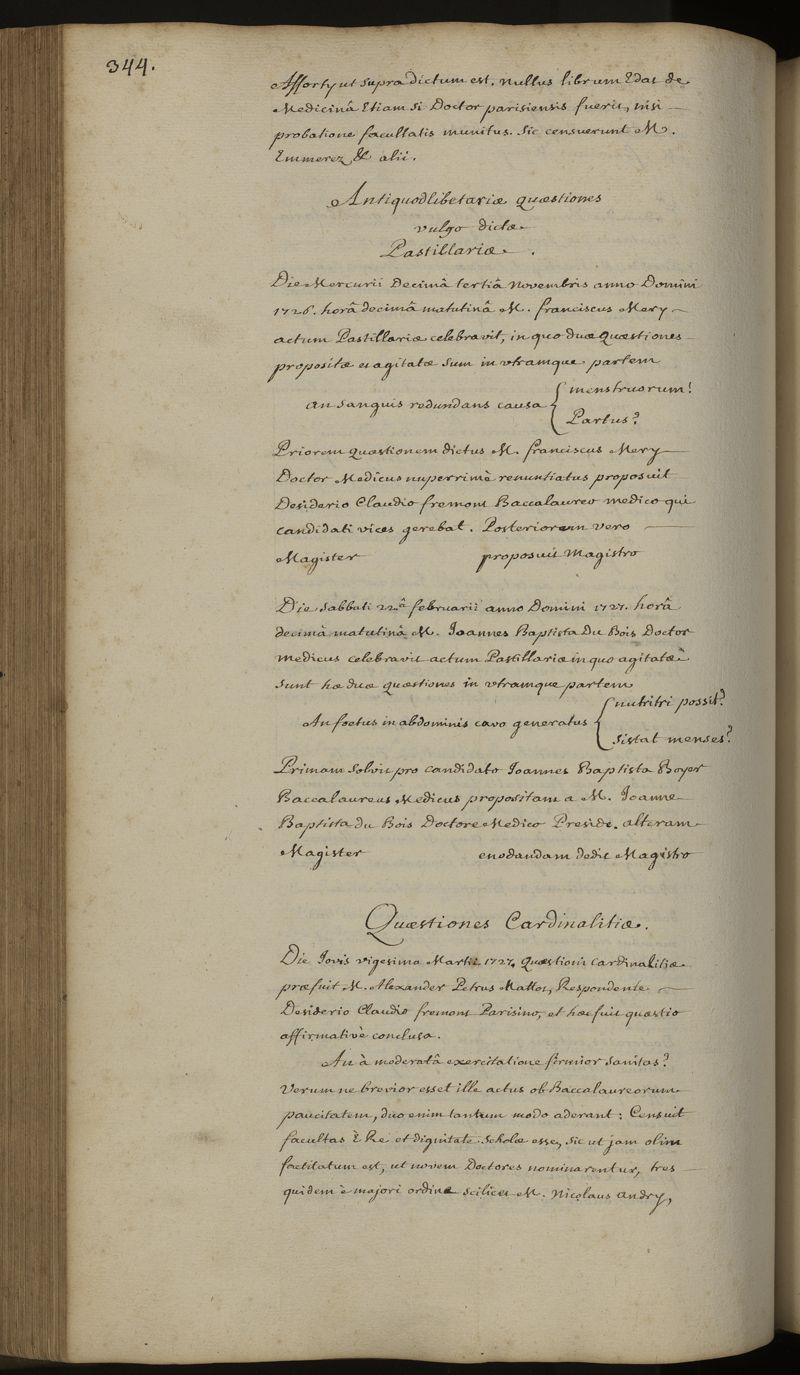 344.
Afforty ut supra dictum est. nullus librum Edat de
Medicinâ Etiam si Doctor parisiensis fuerit, nisi
probatione facultatis munitus. Sic censuerunt M.
Emmerez & alii.
Antiquodlibetariæ quæstiones
vulgo dictæ
Pastillariæ.
Die Mercurii Decimâ tertiâ Novembris anno Domini
1726. horâ decimâ matutinâ M. franciscus Mery
actum Pastillariæ celebravit, in quo duæ Quæstiones
propositæ et agitatæ sunt in utramque partem
an sanguis redundans causa { menstruorum?
Partus?
Priorem quæstionem dictus M. franciscus Mery
Doctor Medicus nuperrimè renuntiatus proposuit
Desiderio Claudio fremont Baccalaureo medico qui
candidati vices gerebat. Posteriorem vero
Magister proposuit Magistro
Die Sabbati 22.â februarii anno Domini 1727. horâ
decimâ matutinâ M. Joannes Baptista Du Bois Doctor
medicus celebravit actum Pastillariæ in quo agitatæ
sunt hæ duæ quæstiones in utramque partem
An foetus in abdominis cavo generatus { nutriri possit?
Sistat menses?
Primam solvit pro candidato Joannes Baptista Boyer
Baccalaureus Medicus propositam a M. Joanne
Baptista du Bois Doctore Medico Preside. alteram
Magister enodandam dedit Magistro
Quæstiones Cardinalitiæ.
Die Jovis vigesima Martii 1727. Quæstioni Cardinalitiæ
præfuit M. Alexander Petrus Mattot, Respondente
Desiderio Claudio fremont Parisino, et hæc fuit quæstio
affirmativè conclusa.
An à moderatâ exercitatione firmior sanitas?
Verum ne brevior esset ille actus ob Baccalaureorum
paucitatem, duo enim tantum modo aderant: Censuit
facultas è Re et dignitate Scholæ esse, sic ut jam olim
factitatum est, ut novem Doctores nominarentur, tres
quidem è majori ordine scilicet M. Nicolaus Andry,